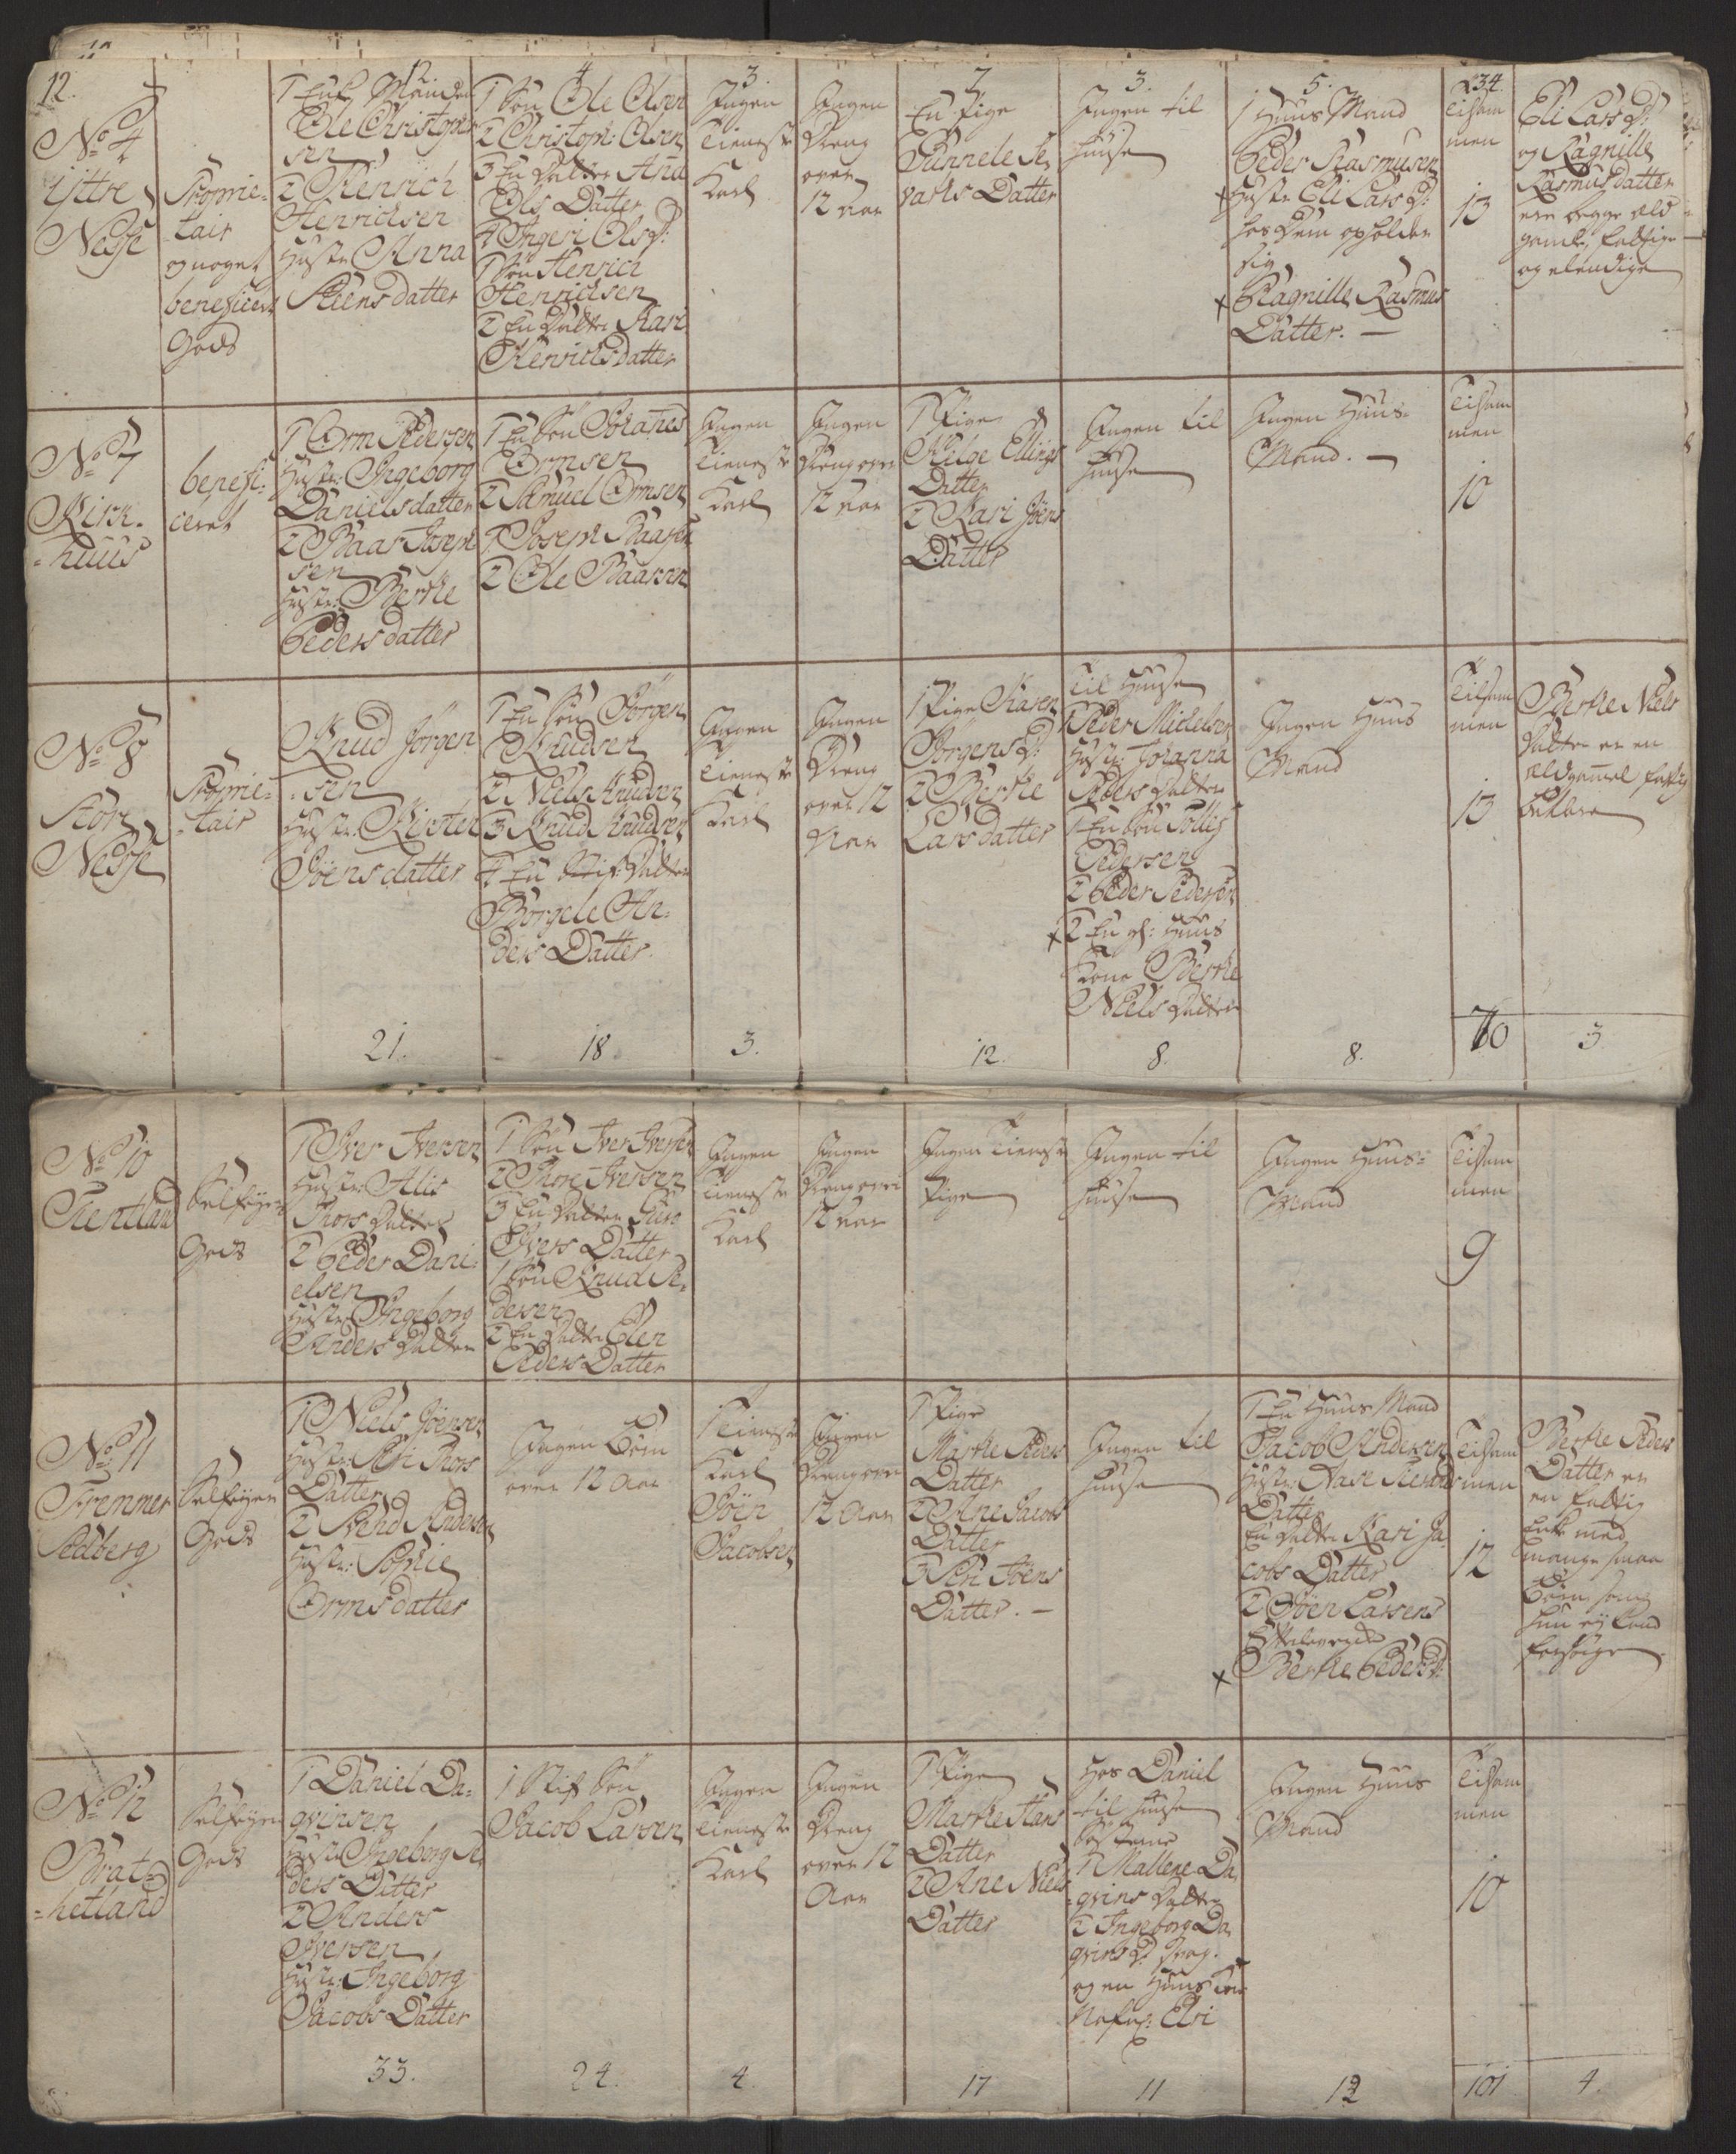 12.
12.
4
3.
7
3.
5.
34.
No 4
Ÿttre
Nedse
Proprie-
tair
og noget
beneficert
Gods
1 Enke Manden
Ole Christophers
sen
2 Henrich
Henrichsen
Hustr: Anna
Steensdatter
1 Søn Ole Olsen
2 Christoph: Olsen
3 En Datter Ana
Ols Datter
4 Ingeri Ols D:
1 Søn Henrich
Henrichsen
2 En Datter Kari
Henrichsdatter
Ingen
Tieneste
Karl
Ingen
Dreng
over
12 Aar
En Pige
Gunnele
Datter
Ingen til
Huuse
1 Huus Mand
Peder Rasmusen
x Hustr: Eli Lars D:
hos Dem opholder
sig
x Ragnille Rasmus
Datter. —
Tilsam
men
13
Eli Lars D:
og Ragnille
Rasmusdatter
ere begge old
gamle fattige
og elendige
No 7
Kirk-
-huus
benefi-
ceret
1 Orm Pedersen
Hustr: Ingeborg
Danielsdatter
2 Baar Joseph
sen
Hustr: Berthe
Pedersdatter
1 En Søn Johanes
Ormsen
2 Samuel Ormsen
1 Joseph Baarsen
2 Ole Baarsen
Ingen
Tieneste
Karl
Ingen
Dreng over
12 Aar
1 Pige
Helge Ellings
Datter
2 Kari Jøens
Datter
Ingen til
Huuse
Ingen Huus-
Mand. —
Tilsam
men
10
No 8
Store
Nedse
Proprie-
-tair
Knud Jørgen
-sen
Hustr: Kirsten
Jøensdatter
1 En Søn Jørgen
Knudsen
2 Niels Knudsen
3 Knud Knudsen
4 En Stif: Datter
Borgele An-
ders Datter
Ingen
Tieneste
Karl
Ingen
Dreng
over 12
Aar
1 Pige Karen
Jørgens D:
2 Berthe
Larsdatter
Til Huuse
1 Peder Michelsen
Hustr: Johanna
Peders Datter
1 En Søn Tollig
Pedersen
2 Peder Pedersen
x 2 En gl: Huus
Kone Berthe
Niels Datter
Ingen Huus
Mand
Tilsam
men
13
Berthe Niels
Datter er en
Oldgammel fattig
Betlere
21.
18.
3.
12.
8.
8.
70
3
No 10
Hentland
Selfeyer
Gods
1 Iver Iversen
Hustr: Alis
Thors Datter
2 Peder Dani-
elsen
Hustr: Ingeborg
Anders Datter
1 Søn Iver Iversen
2 Thore Iversen
3 En Datter Guro
Ivers Datter
1 Søn Knud Pe-
dersen
2 En Datter Elen
Peders Datter
Ingen
Tieneste
Karl
Ingen
Dreng over
12 Aar
Ingen Tieneste
Pige
Ingen til
Huuse
Ingen Huus-
Mand
Tilsam
men
9
No 11
Fremmer
Sedberg
Selfeyer
Gods
1 Niels Jøensen
Hustr: Siri Thors
Datter
2 Svend Andersen
Hustr: Sophie
Ormsdatter
Ingen Børn
over 12 Aar
1 Tieneste
Karl
Jøen
Jacobsen
Ingen
Dreng over
12 Aar
1 Pige
Marthe Peders
Datter
2 Ane Jacobs
Datter
3 Siri Jøens
Datter. —
Ingen til
Huuse
1 En Huus Mand
Jacob Andersen
Hustr: Aase
Datter
En Datter Kari Ja-
cobs Datter
2 Jøen Larsens
Efterleverske
x Berthe Peders D:
Tilsam
men
12
Berthe Peders
Datter er
en fattig
Enke med
mange smaa
Børn, som
hun ey kand
forsørge
No 12
Brat-
-hetland
Selfeyer
Gods
1 Daniel Da-
qvinsen
Hustr: Ingeborg Pe-
ders Datter
2 Anders
Iversen
Hustr: Ingeborg
Jacobs Datter
1 Stif Søn
Jacob Larsen
Ingen
Tieneste
Karl
Ingen
Dreng
over 12
Aar
1 Pige
Marthe Hans
Datter
2 Ane Niels
Datter
Hos Daniel
til Huuse
Søsterne
1 Mallene Da-
qvins Datter
2 Ingeborg Da-
qvins D: svag.
og en Huus Kone
Nafnl: Elsi
Ingen Huus
Mand
Tilsam
men
10
33.
24.
4.
17
11
12
101
4.